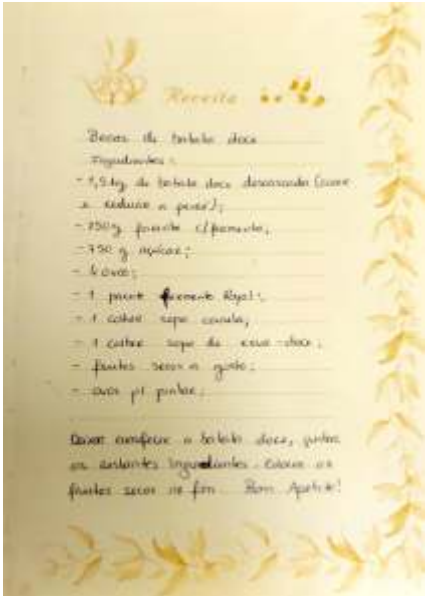 Receita
Broas de batata doce
Ingredientes:
- 1,5 kg de batata doce descascada (cozer
e reduzir a puré);
- 750g farinha c/ fermento;
- 750 g açúcar;
- 4 ovos;
- 1 pacote fermento Royal;
- 1 colher sopa canela;
- 1 colher sopa de erva-doce;
- frutos secos a gosto;
- ovos p/ pintar;
Deixar arrefecer a batata doce, juntar
os restantes ingredientes. Colocar os
frutos secos no fim. Bom Apetite!